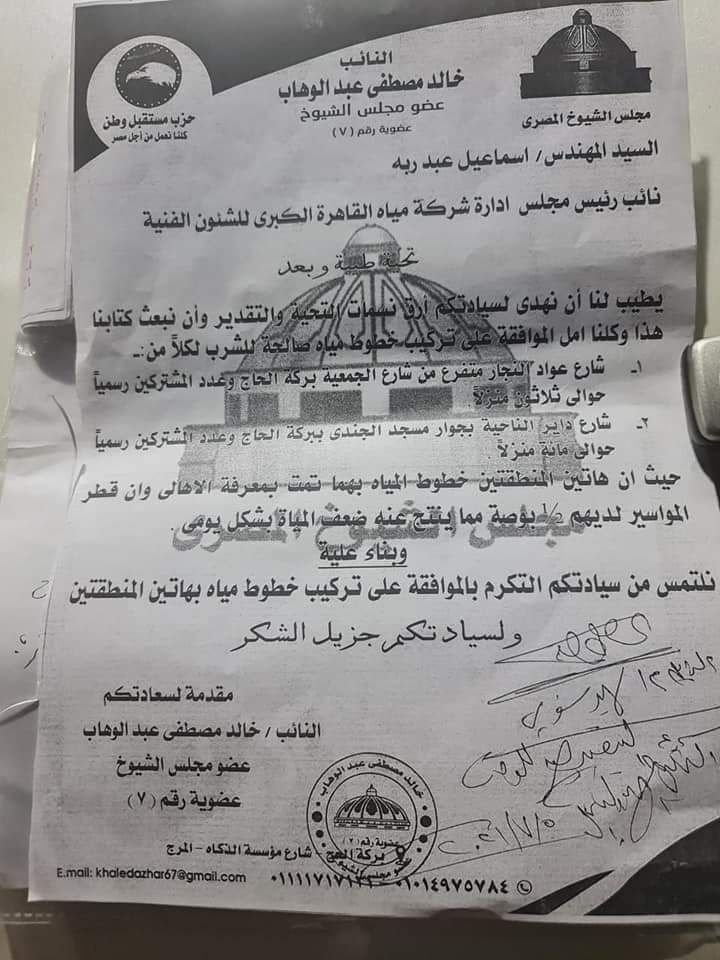 النائب
خالد مصطفى عبد الوهاب
عضو مجلس الشيوخ
عضوية رقم (٧)
حزب مستقبل وطن
كلنا نعمل من أجل مصر
مجلس الشيوخ المصرى
السيد المهندس/ اسماعيل عبد ربه
نائب رئيس مجلس ادارة شركة مياه القاهرة الكبرى للشئون الفنية
تحية طيبة وبعد
يطيب لنا أن نهدى لسيادتكم أرق نسمات التحية والتقدير وأن نبعث كتابنا
هذا وكلنا امل الموافقة على تركيب خطوط مياه صالحة للشرب لكلاً من:ـ
١ـ شارع عواد النجار متفرع من شارع الجمعية بركة الحاج وعدد المشتركين رسمياً
حوالى ثلاثون منزلاً.
٢ـ شارع داير الناحية بجوار مسجد الجندى ببركة الحاج وعدد المشتركين رسمياً
حوالى مائة منزلاً.
حيث ان هاتين المنطقتين خطوط المياه بهما تمت بمعرفة الاهالى وان قطر
المواسير لديهم ½ بوصة مما ينتج عنه ضعف المياة بشكل يومى.
وبناء علية
نلتمس من سيادتكم التكرم بالموافقة على تركيب خطوط مياه بهاتين المنطقتين
ولسيادتكم جزيل الشكر
مقدمة لسعادتكم
النائب / خالد مصطفى عبد الوهاب
عضو مجلس الشيوخ
عضوية رقم (٧)
٢٠٢١/٧/٥
خالد مصطفى عبد الوهاب
عضوية رقم (٧)
عضو مجلس الشيوخ
بركة الحج - شارع مؤسسة الذكاه - المرج
E.mail: khaledazhar67@gmail.com
٠١٠١٤٩٧٥٧٨٤